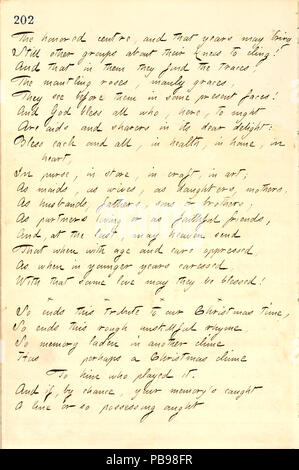 202
The honored centre, and that years may bring
Still other groups about their knees to cling!
And that in them they find the traces,
The mantling roses, manly graces,
They see before them in some present faces!
And God bless all who, here, to night
Are aids and sharers in its dear delight:
Bless each and all, in health, in home, in
heart,
In purse, in store, in craft, in art;
As maids, as wives, as daughters, mothers,
As husbands, fathers, sons or brothers,
As partners living or as faithful friends,
And, at the last, may heaven send
That when with age and care oppressed,
As when in younger years caressed
With that same love may they be blessed!
So ends this tribute to our Christmas time,
So ends this rough unskillful rhyme
So memory laden in another clime
Has perhaps a Christmas chime
To him who played it.
And if, by chance, your memory's caught
A line or so possessing aught
alamy
Image ID: PB98FR
www.alamy.com